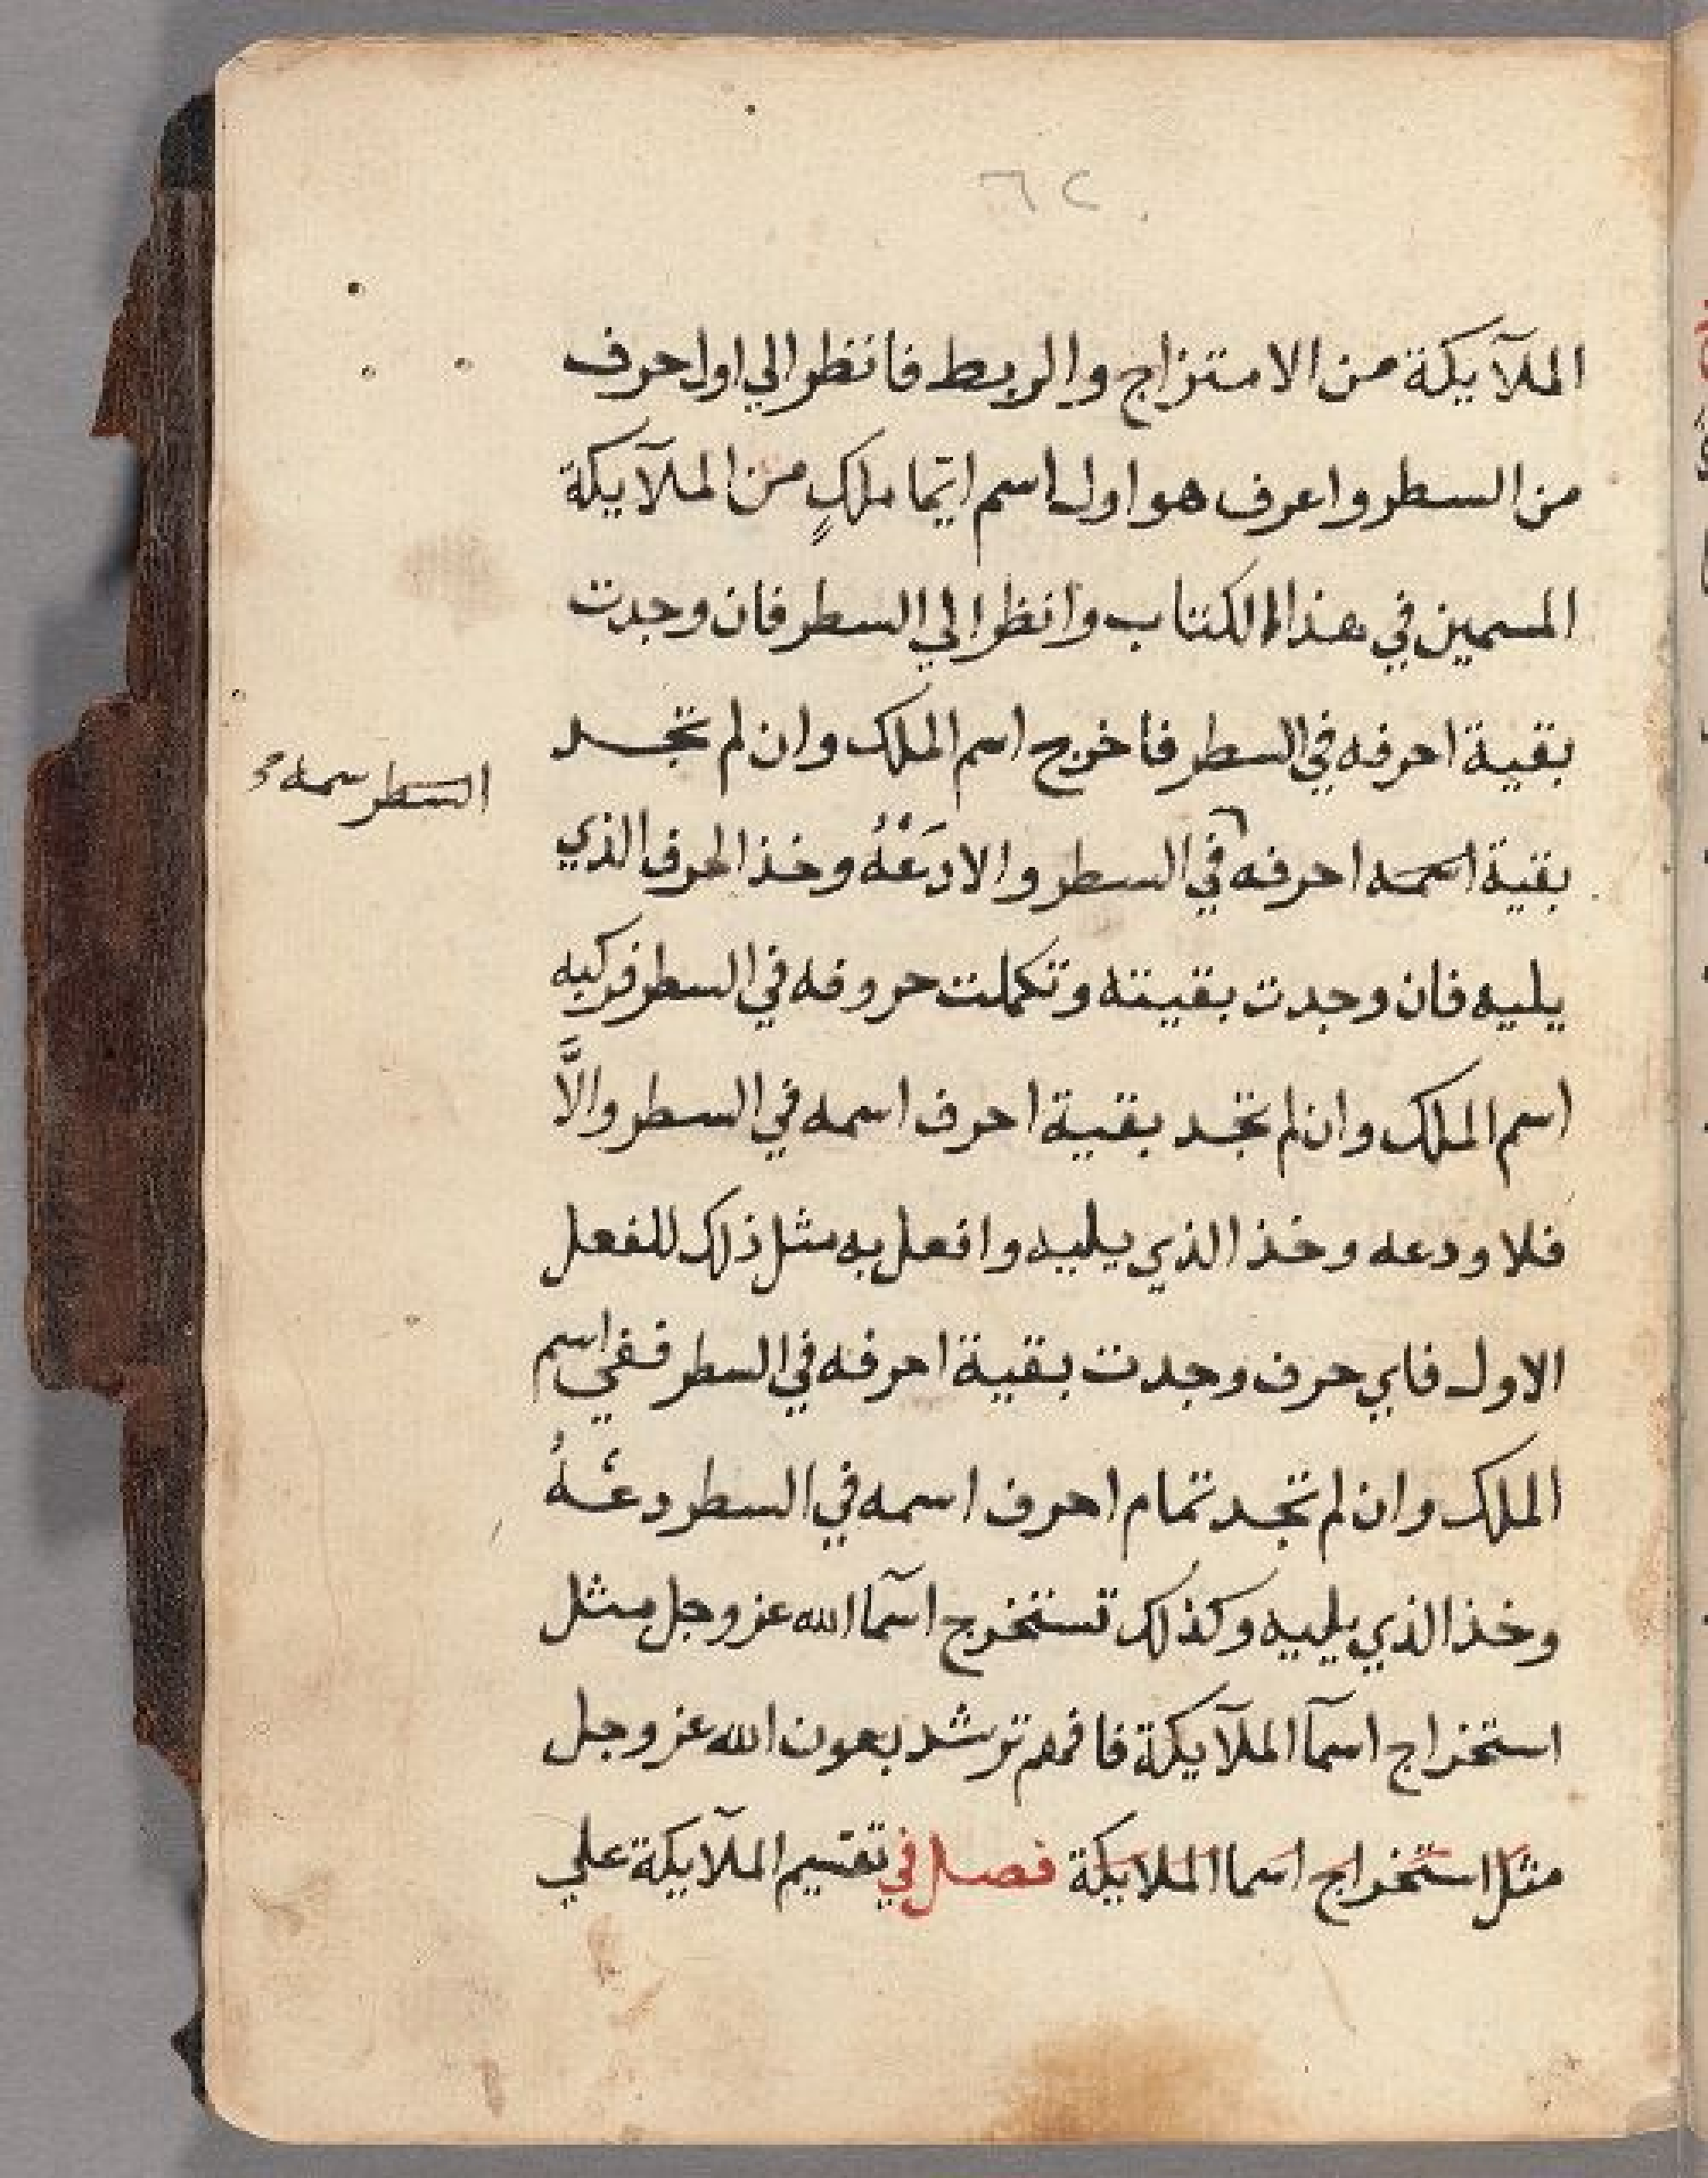 ٦٢
الملآيكة من الامتزاج والربط فانظر الي اول حرف
من السطر واعرف هو اول اسم ايّما ملكٍ من الملآيكة
المسمين في هذا الكتاب وانظر الي السطر فان وجدت
بقية احرفه في السطر فاخرج اسم الملك وان لم تجد
السطر سمه
بقية اسمه احرفه في السطر والا دَعْهُ وخذ الحرف الذي
يليه فان وجدت بقيته وتكملت حروفه في السطر فركبه
اسم الملك وان لم تجد بقية احرف اسمه في السطر والَّا
فلا ودعه وخذ الذي يليه وافعل به مثل ذلك للفعل
الاول فاي حرف وجدت بقية احرفه في السطر ففي اسم
الملك وان لم تجد تمام احرف اسمه في السطر دعْهُ
وخذ الذي يليه وكذلك تستخرج اسمآ الله عز وجل مثل
استخراج اسمآ الملآيكة فافهم ترشد بعون الله عز وجل
مثل استخراج اسما الملايكة فصل في تقسيم الملآيكة علي